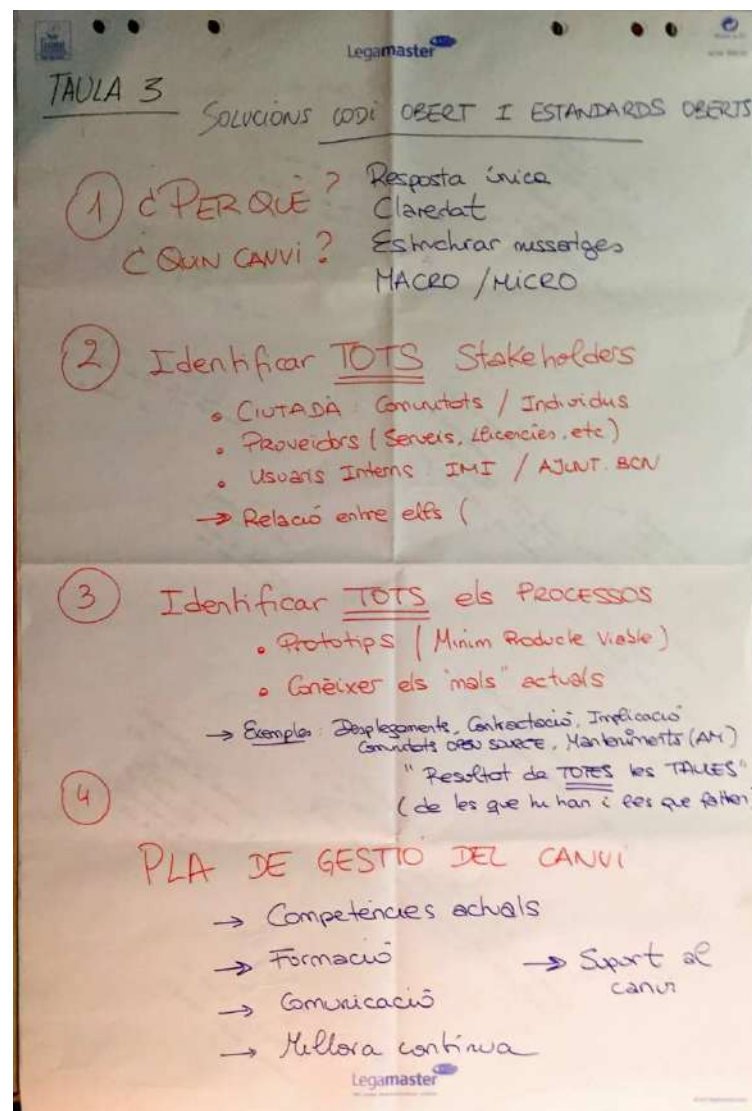 Legamaster
TAULA 3
SOLUCIONS CODI OBERT I ESTANDARDS OBERTS
1 ¿PER QUÈ? Resposta única
Claredat
¿QUIN CANVI? Estructurar missatges
MACRO / MICRO
2 Identificar TOTS Stakeholders
• CIUTADÀ: Comunitats / Individus
• Proveïdors (Serveis, Llicencies, etc)
• Usuaris Interns: IMI / AJUNT. BCN
→ Relació entre ells (
3 Identificar TOTS els PROCESSOS
• Prototips (Minim Producte Viable)
• Conèixer els "mals" actuals
→ Exemples: Desplegaments, Contractació, Implicació
Comunitats OPEN SOURCE, Manteniments (AM)
"Resultat de TOTES les TAULES"
(de les que hi han i les que falten)
4
PLA DE GESTIÓ DEL CANVI
→ Competències actuals
→ Formació → Suport al
canvi
→ Comunicació
→ Millora contínua
Legamaster